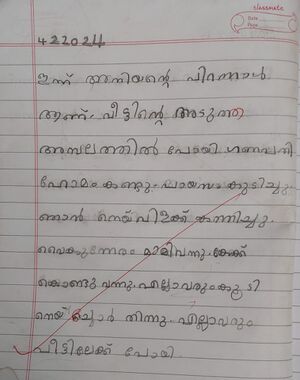 classmate
Date
Page
422024
ഇന്ന് അനിയന്റെ പിറന്നാൾ
ആണ്. വീട്ടിന്റെ അടുത്ത
അമ്പലത്തിൽ പോയി ഗണപതി
ഹോമം കണ്ടു. പായസം കുടിച്ചു.
ഞാൻ നെയ് വിളക്ക് കത്തിച്ചു.
വൈകുന്നേരം മാമിവന്നു. കേക്ക്
കൊണ്ടു വന്നു. എല്ലാവരുംകൂടി
നെയ് ച്ചോർ തിന്നു. എല്ലാവരും
വീട്ടിലേക്ക് പോയി